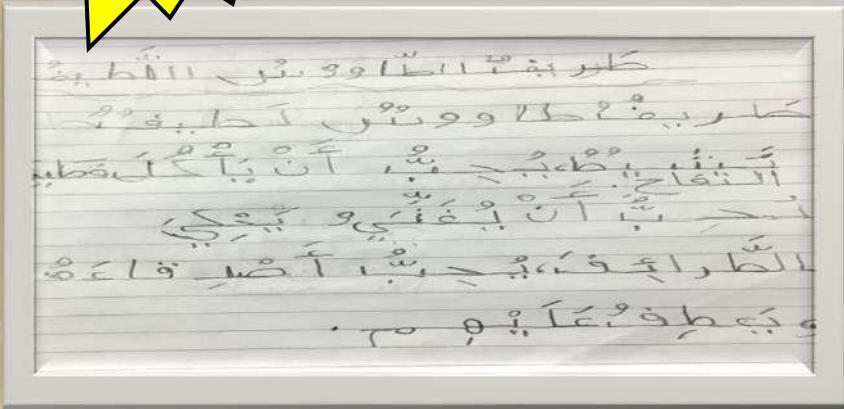 طَريفٌ الطّاووسُ اللَّطيفُ
طَريفٌ طاووسٌ لَطيفٌ
نَشيطٌ، يُحِبُّ أَنْ يَأْكُلَ فَطير
التفاح.
يُحِبُّ أَنْ يُغَنِّيَ و يَحْكِيَ
الطَّرائِفَ، يُحِبُّ أَصْدِقاءَهُ
وَيَعْطِفُ عَلَيْهِم.